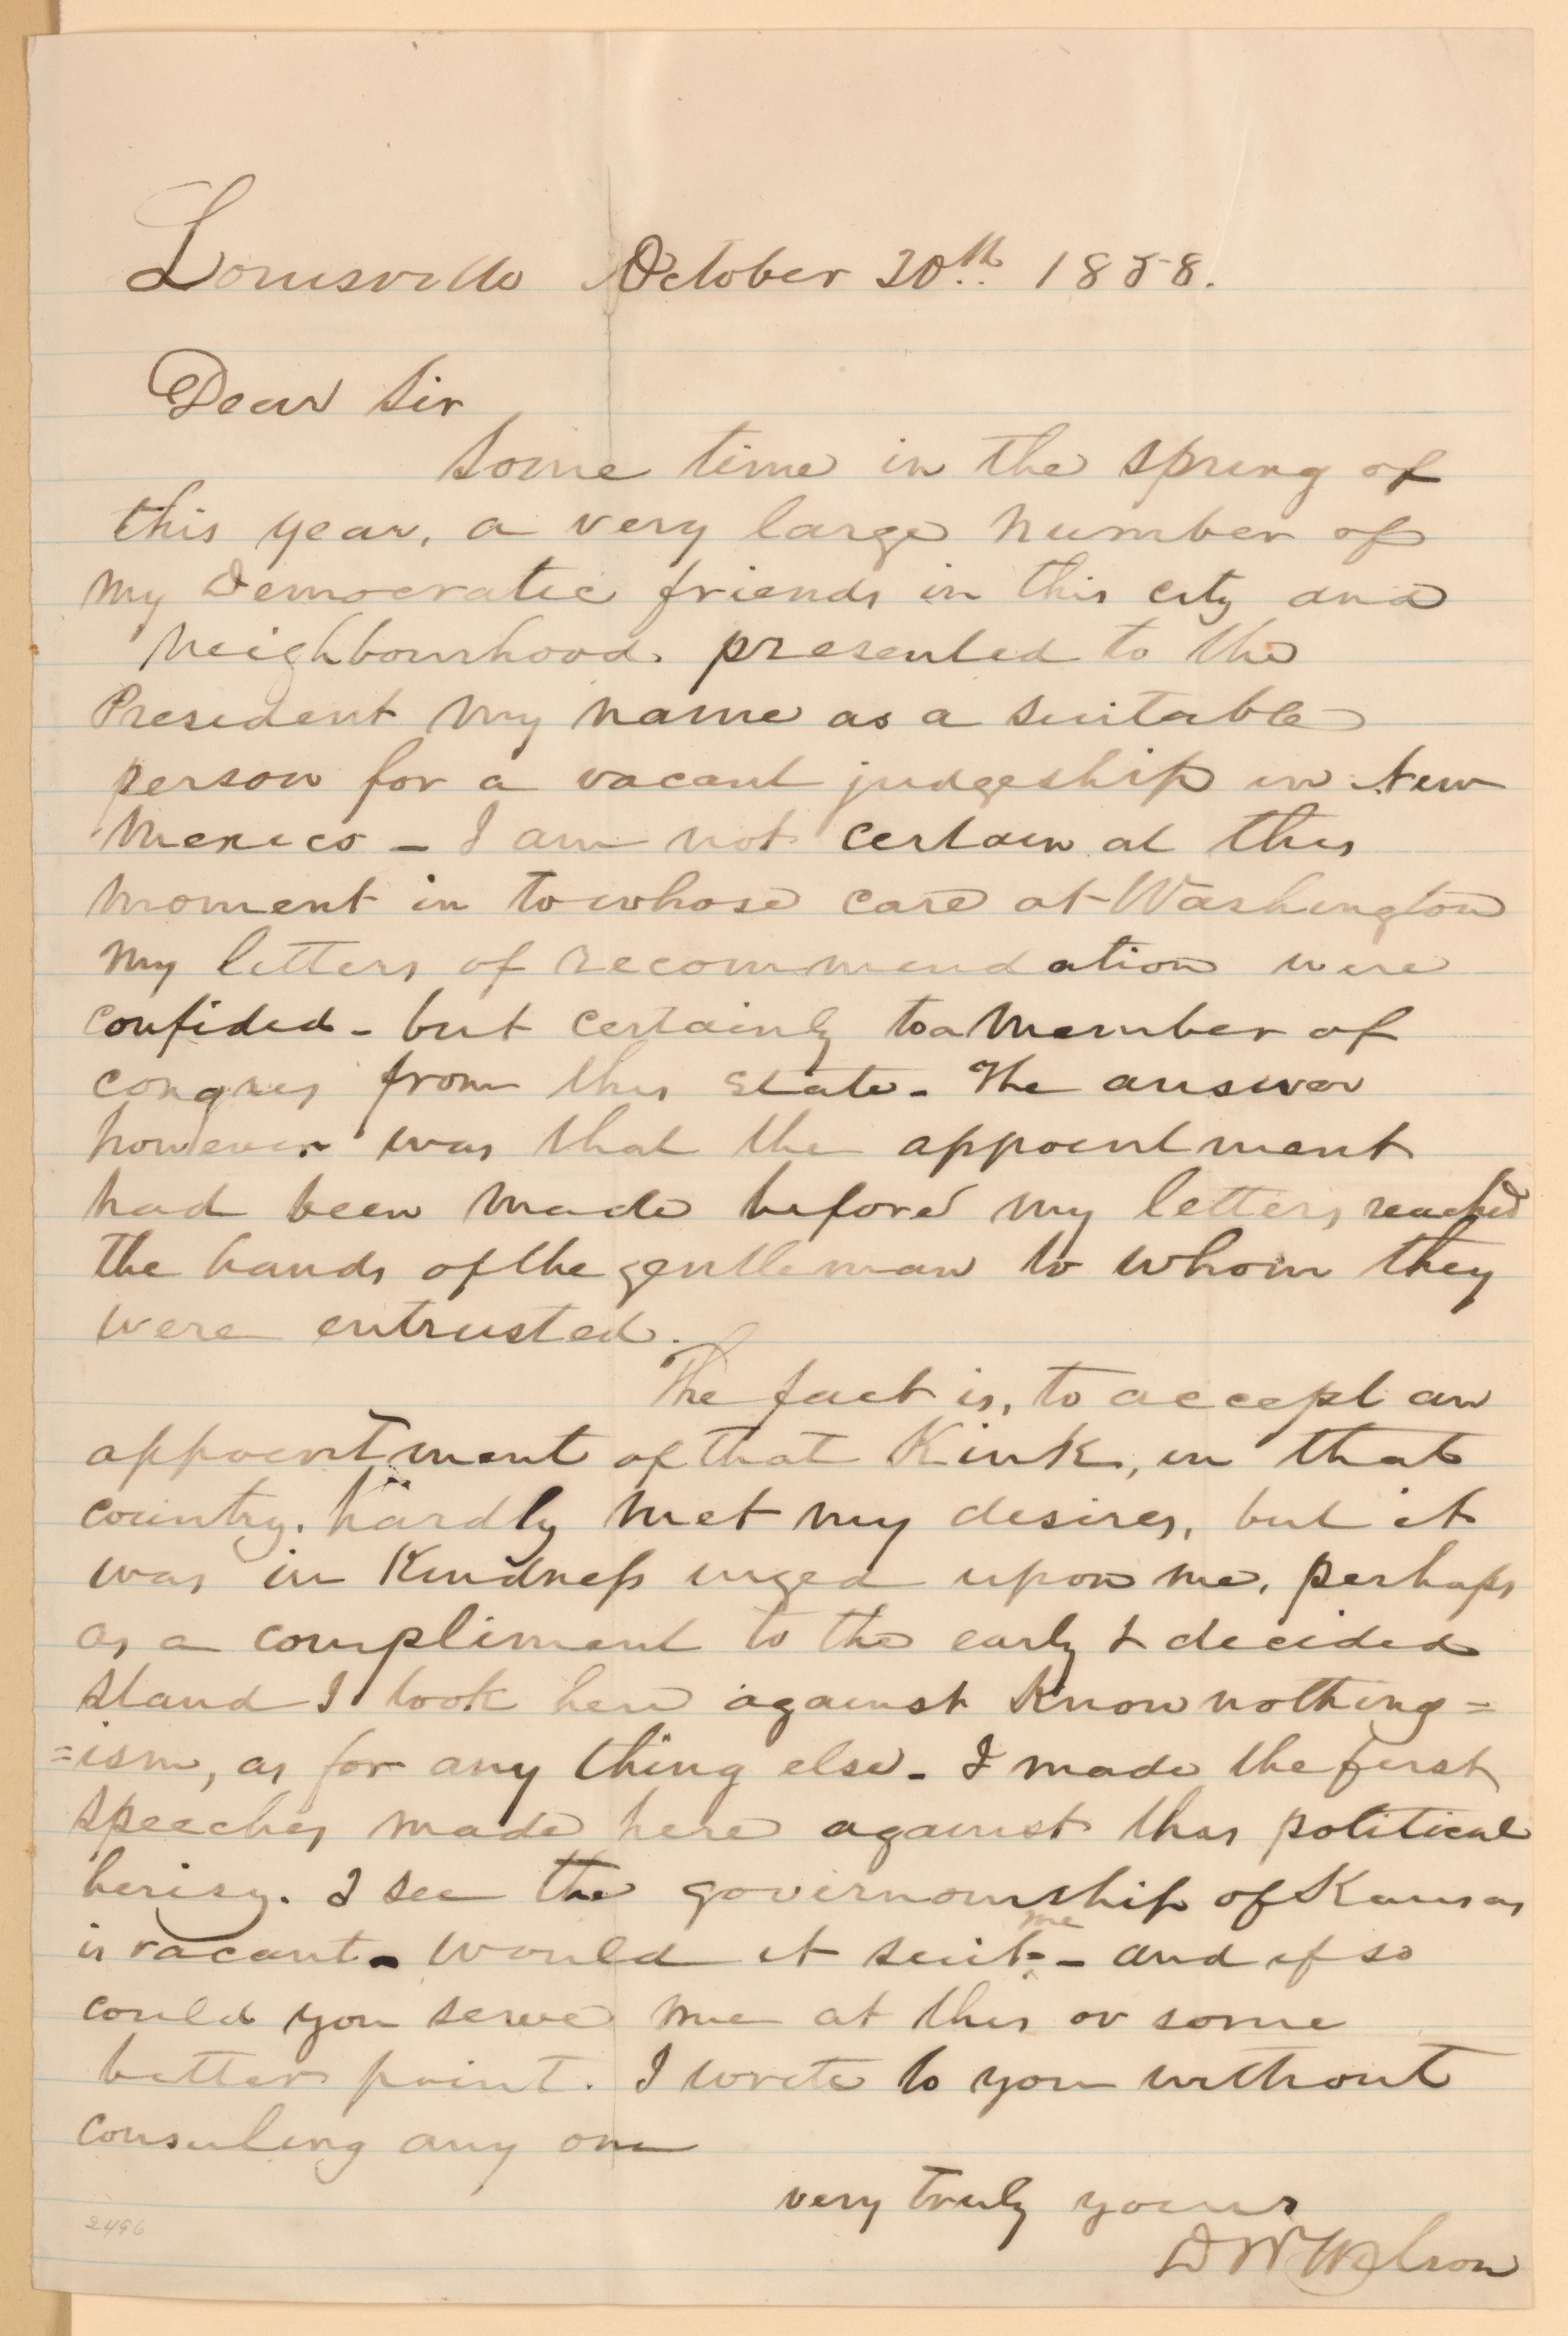 Louisville October 20th 1858.
Dear Sir
Some time in the spring of
this year, a very large number of
my Democratic friends in this city and
neighbourhood presented to the
President my name as a suitable
person for a vacant judgeship in New
Mexico - I am not certain at this
moment in to whose care at Washington
my letters of recommendation were
confided - but certainly to a member of
congres from this State - The answer
however was that the appointment
had been made before my letters reached
the hands of the gentleman to whom they
were entrusted.
The fact is, to accept an
appointment of that Kink, in that
country, hardly met my desires, but it
was in Kindness urged upon me, perhaps
as a compliment to the early & decided
stand I took here against Know nothing=
=ism, as for any thing else - I made the first
speeches made here against this political
herisy. I see the governourship of Kansas
is vacant - would it suit me - and if so
could you serve me at this or some
better point. I write to you without
consuling any one
very truly yours
D W Wilson
2496